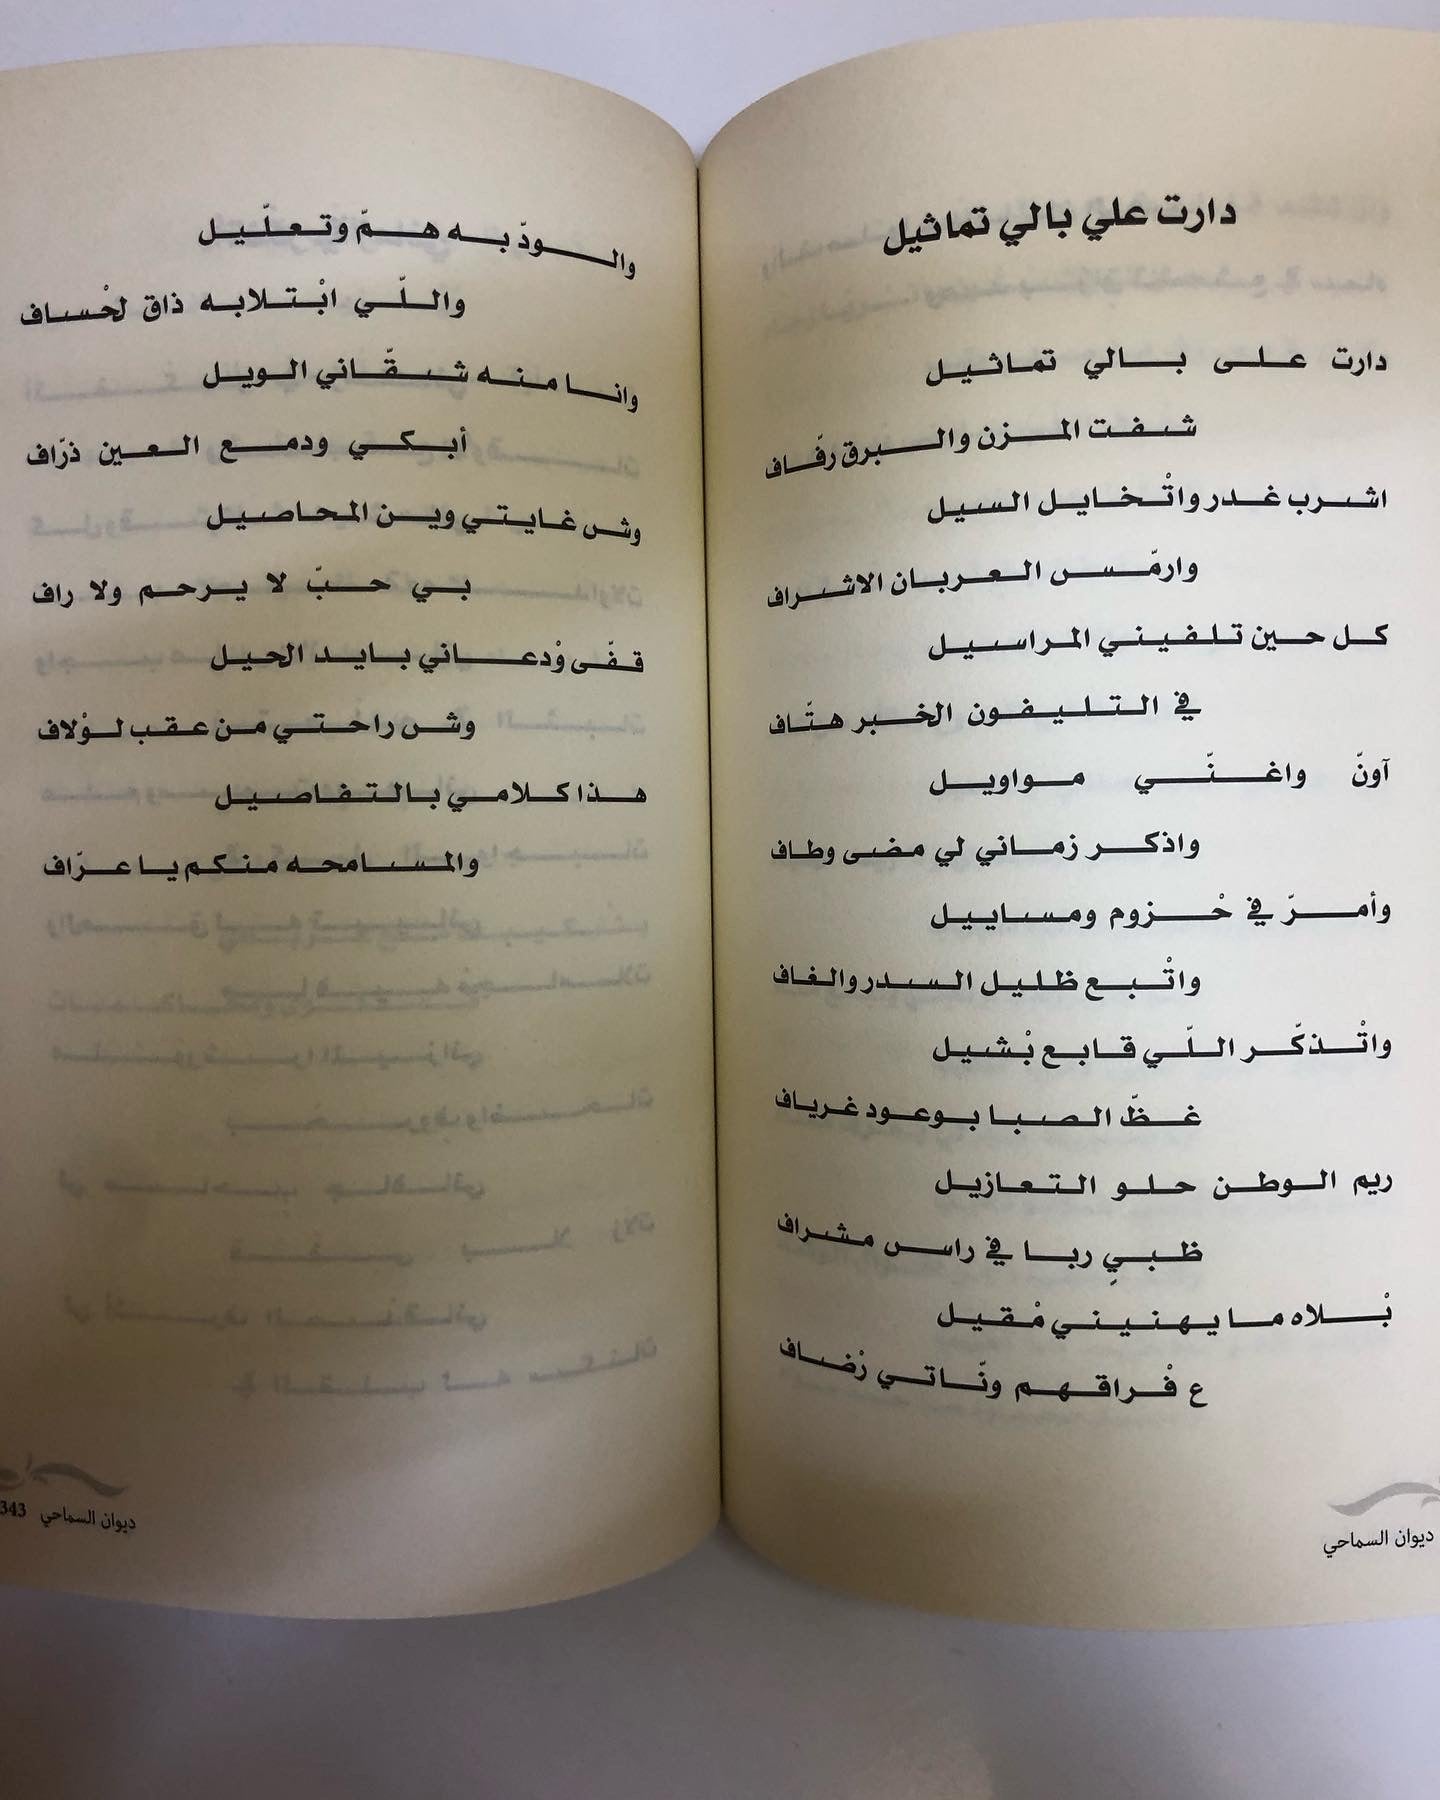 دارت علي بالي تماثيل
دارت على بالي تماثيل
شفت المزن والبرق رفّاف
اشرب غدر واتْخايل السيل
وارمّس العربان الاشراف
كل حين تلفيني المراسيل
في التليفون الخبر هتّاف
آونّ واغنّي مواويل
واذكر زماني لي مضى وطاف
وأمرّ في حْزوم ومساييل
واتْبع ظليل السدر والغاف
واتْذكّر اللّي قابع بْشيل
غظّ الصبا بوعود غرياف
ريم الوطن حلو التعازيل
ظبيٍ ربا في راس مشراف
بْلاه ما يهنيني مْقيل
ع فْراقهم ونّاتي رْضاف
ديوان السماحي
والودّ به همّ وتعلّيل
واللّي ابْتلابه ذاق لحْساف
وانا منه شقّاني الويل
أبكي ودمع العين ذرّاف
وش غايتي وين المحاصيل
بي حبّ لا يرحم ولا راف
قفّى وْدعاني بايد الحيل
وش راحتي من عقب لوْلاف
هذا كلامي بالتفاصيل
والمسامحه منكم يا عرّاف
ديوان السماحي 343